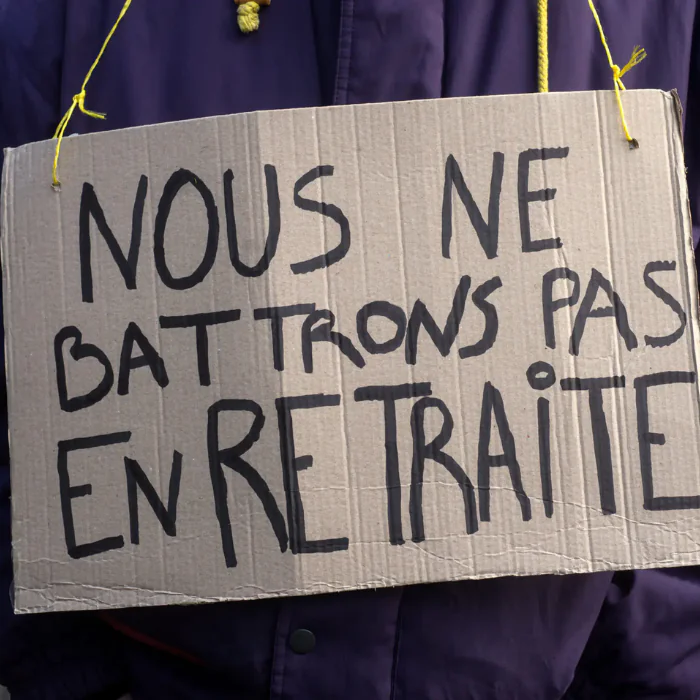 NOUS NE
BATTRONS PAS
EN RETRAiTE